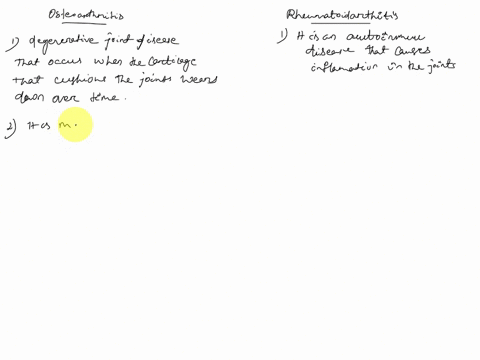 Osteoarthritis
1) degenerative joint disease
that occurs when the cartilage
that cushions the joints wears
down over time.
2) It is m.
Rheumatoidarthritis
1) It is an autoimmune
disease that causes
inflamation in the joints